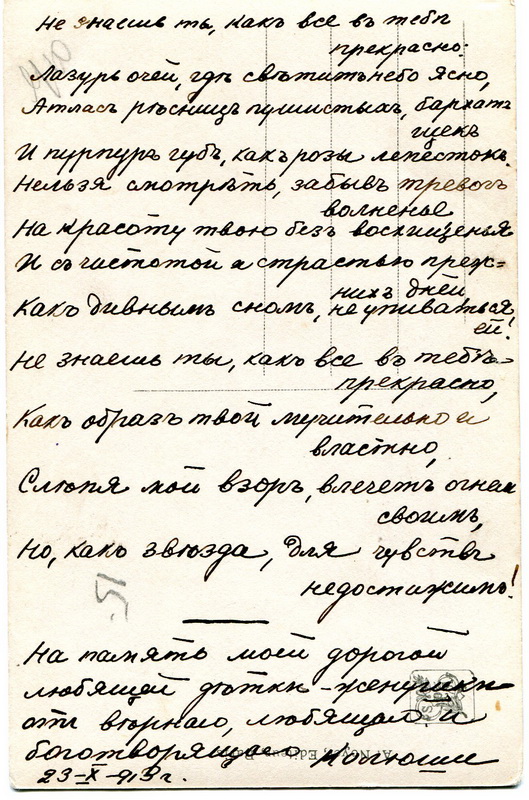 Не знаешь ты, какъ все въ тебѣ
прекрасно:
Лазурь очей, гдѣ свѣтитъ небо ясно,
Атласъ рѣсницъ пушистыхъ, бархатъ
щекъ
И пурпуръ губъ, какъ розы лепестокъ.
Нельзя смотрѣть, забывъ тревогъ
волненье
На красоту твою безъ восхищенья
И съ чистотой и страстью преж=
нихъ дней
Какъ дивнымъ сномъ, не упиваться
ей!
Не знаешь ты, какъ все въ тебѣ=
прекрасно,
Какъ образъ твой мучительно и
властно,
Слѣпя мой взоръ, влечетъ огнем
своимъ,
Но, какъ звѣзда, для чувствъ
недостижимъ!
На память моей дорогой
любящей дѣтки - женушки
отъ вѣрнаго, любящаго и
боготворящаго
23-X-913г.